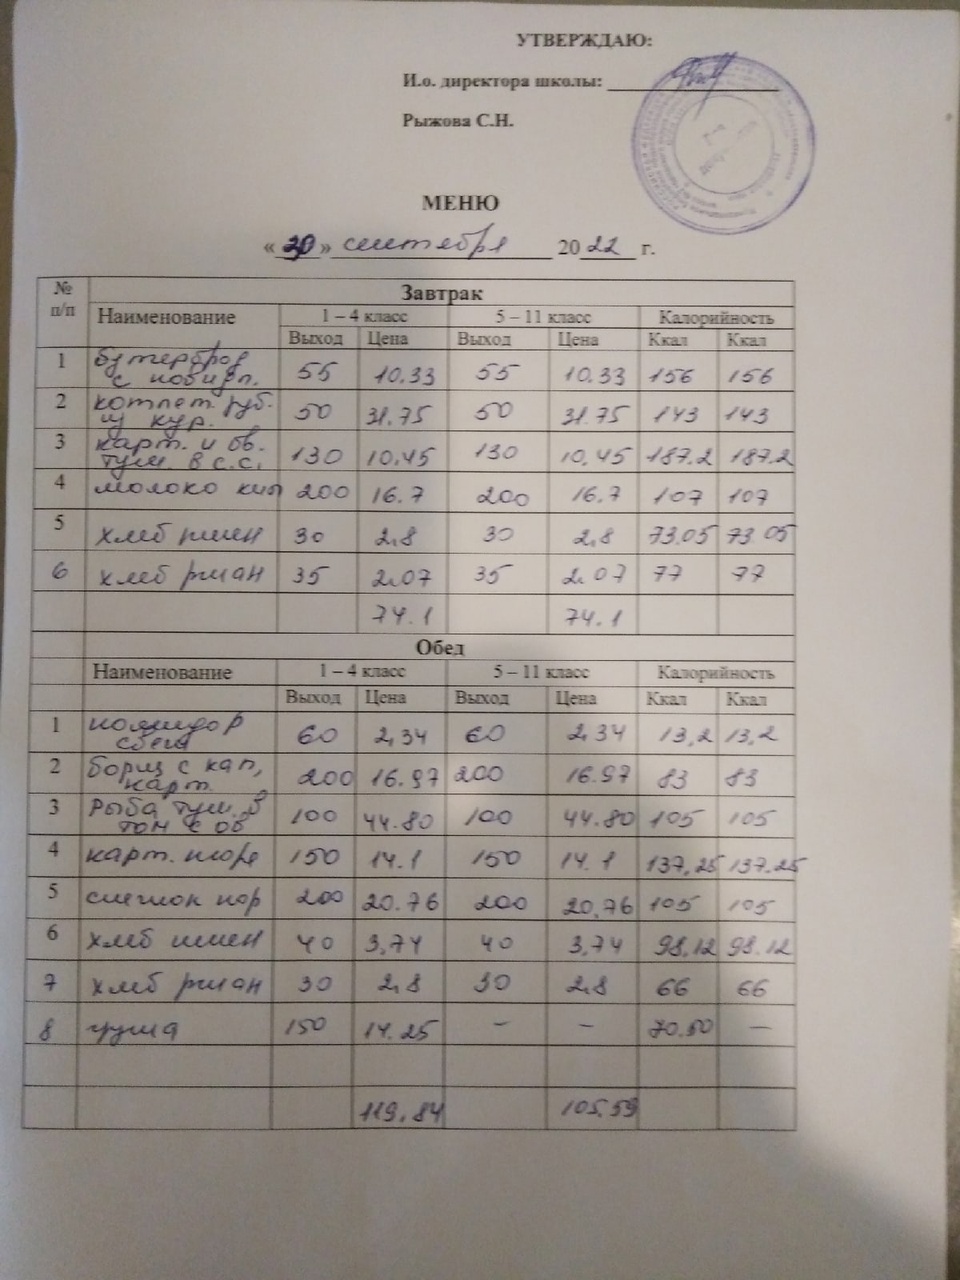 УТВЕРЖДАЮ:
И.о. директора школы:
Рыжова С.Н.
МЕНЮ
« 30 » сентября 2022 г.
№ п/п Завтрак
Наименование 1 – 4 класс 5 – 11 класс Калорийность
Выход Цена Выход Цена Ккал Ккал
1 бутерброд
с повидл. 55 10.33 55 10.33 156 156
2 котлет. руб.
из кур. 50 31.75 50 31.75 143 143
3 карт. и ов.
туш. в с.с. 130 10.45 130 10.45 187.2 187.2
4 молоко кип 200 16.7 200 16.7 107 107
5 хлеб пшен 30 2,8 30 2,8 73.05 73 05
6 хлеб ржан 35 2.07 35 2.07 77 77
74.1 74.1
Обед
Наименование 1 – 4 класс 5 – 11 класс Калорийность
Выход Цена Выход Цена Ккал Ккал
1 помидор
свеж 60 2,34 60 2,34 13,2 13,2
2 борщ с кап,
карт. 200 16.97 200 16.97 83 83
3 Рыба туш. в
том с ов 100 44.80 100 44.80 105 105
4 карт. пюре 150 14.1 150 14.1 137,25 137.25
5 200 20.76 200 20,76 105 105
6 хлеб пшен 40 3,74 40 3,74 98,12 98.12
7 хлеб ржан 30 2,8 30 2,8 66 66
8 груша 150 14.25 – – 70.50 —
119,84 105.59